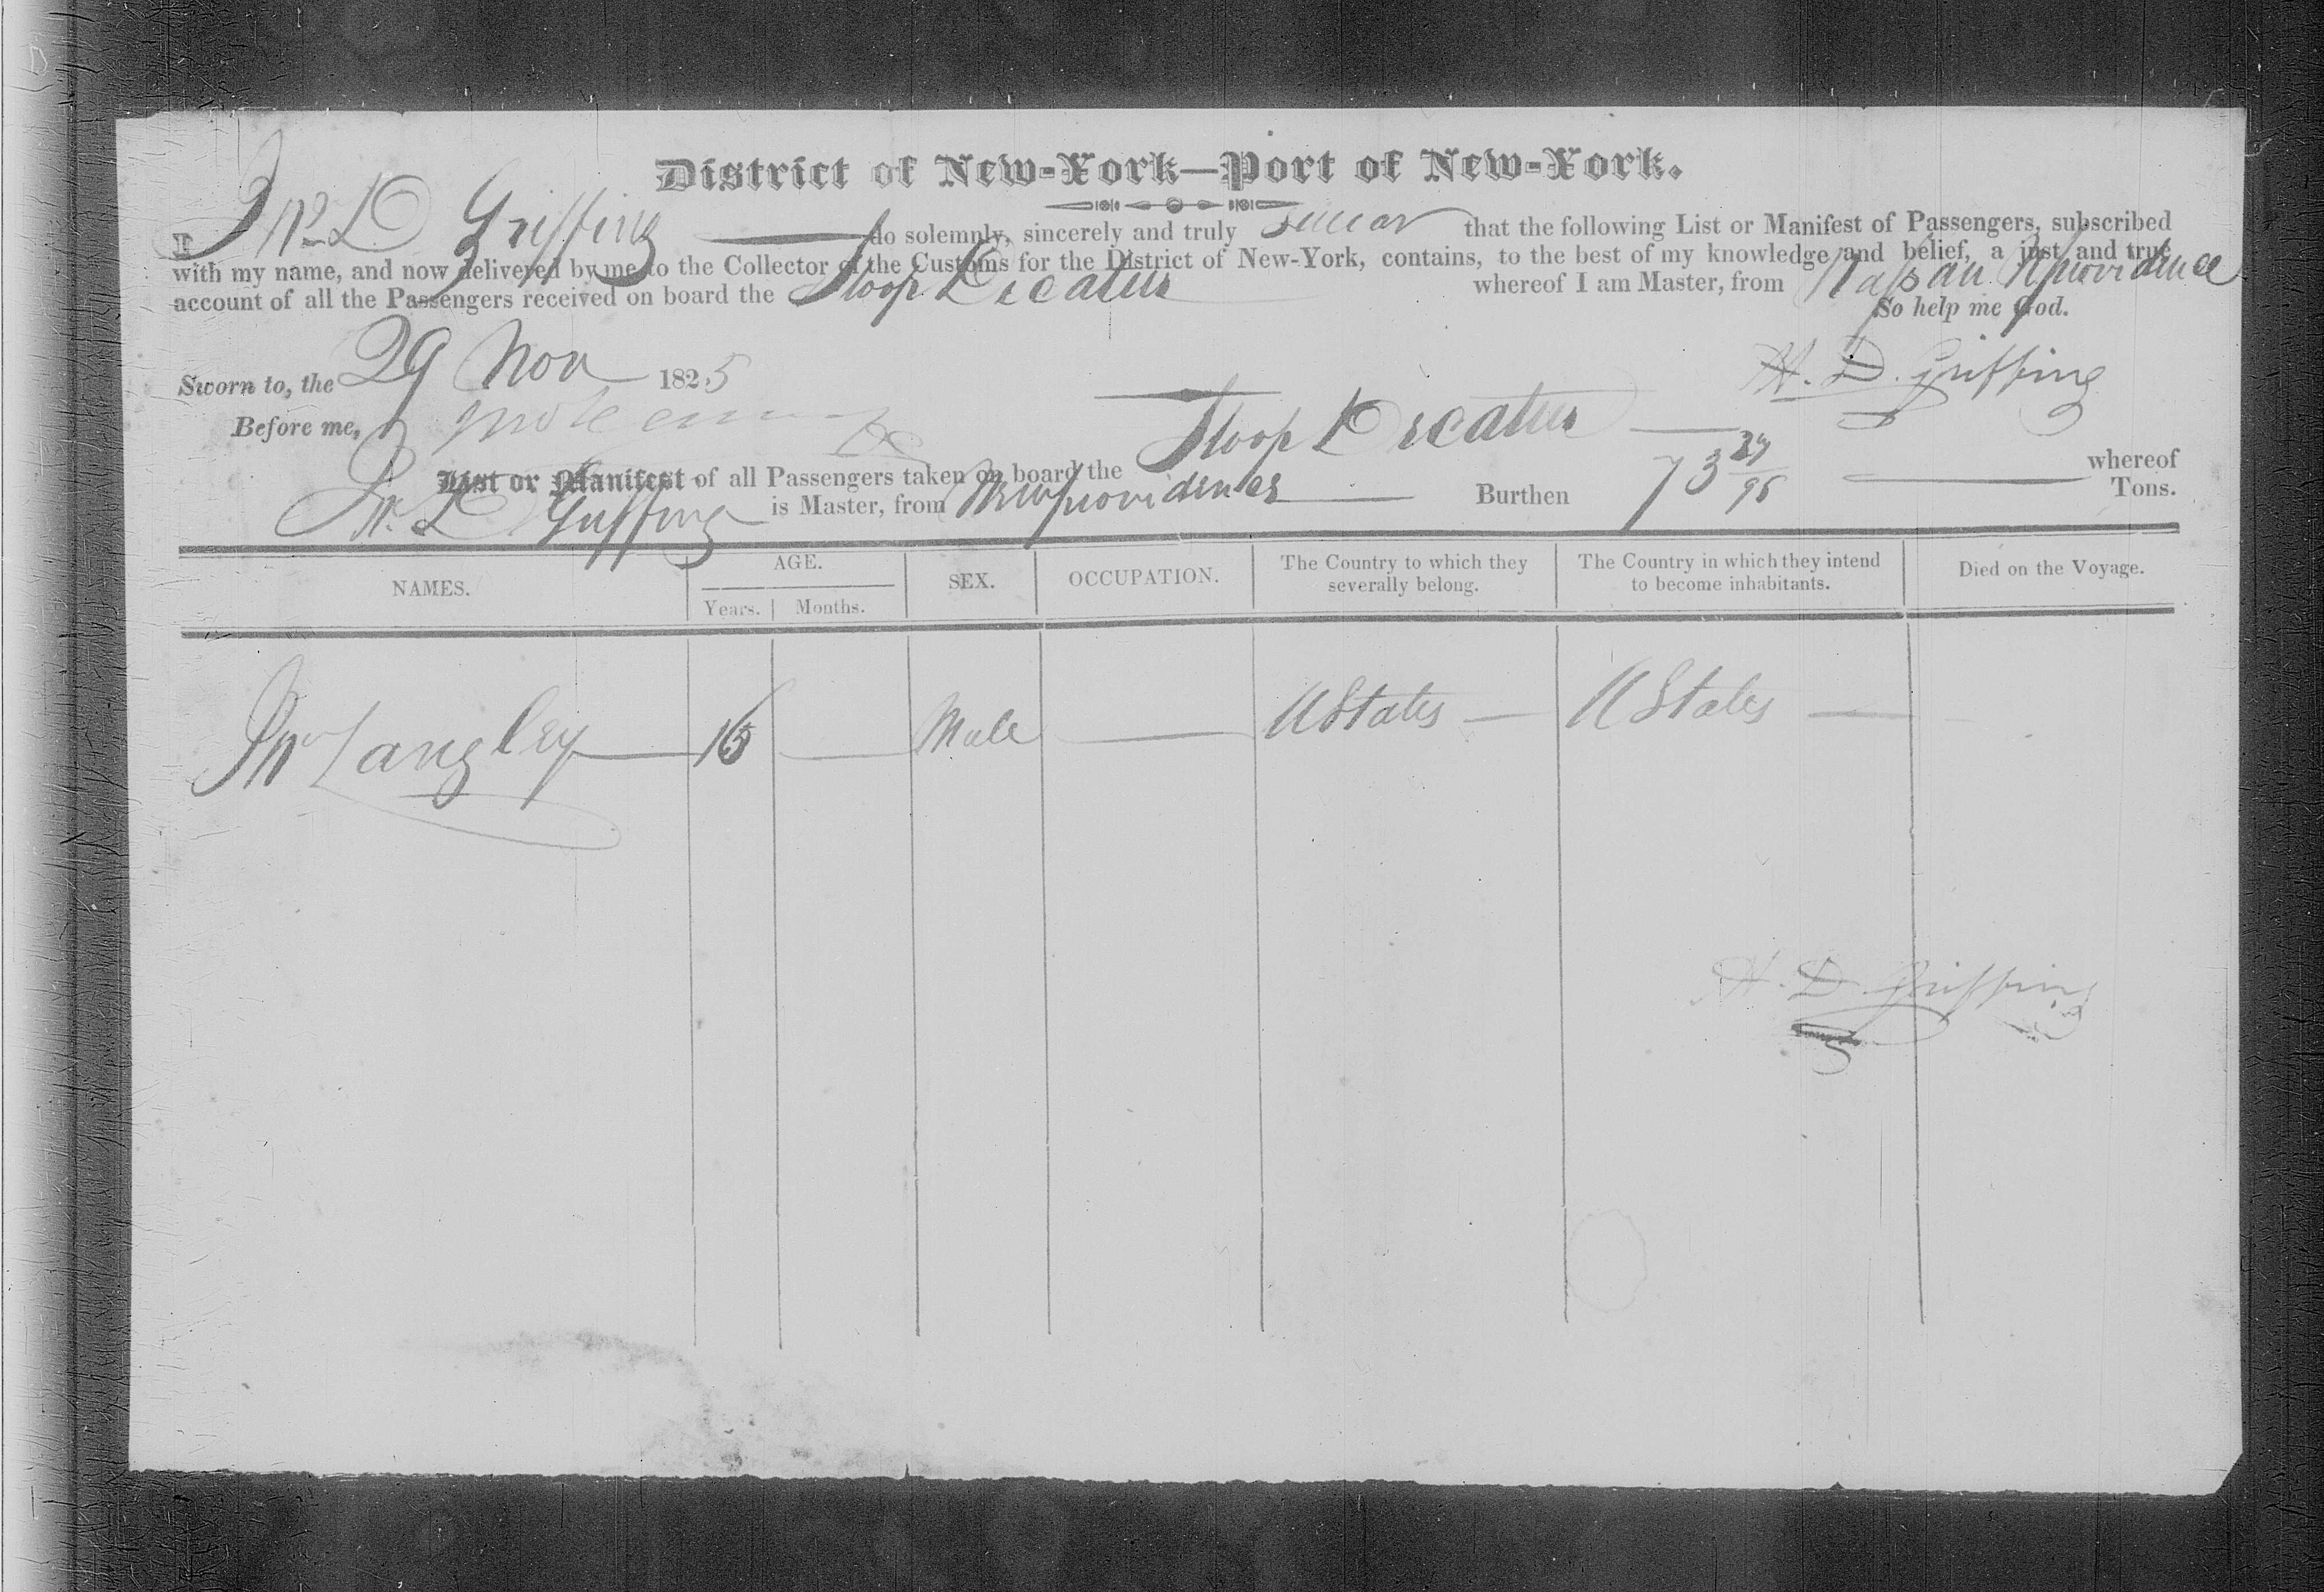 District of New-York—Port of New-York.
I Jno D Griffing do solemnly, sincerely and truly swear that the following List or Manifest of Passengers, subscribed
with my name, and now delivered by me to the Collector of the Customs for the District of New-York, contains, to the best of my knowledge and belief, a just and true
account of all the Passengers received on board the Sloop Decatur whereof I am Master, from Nassau Nprovidence
So help me God.
Sworn to, the 29 Nov 1825
H. D. Griffing
Before me,
List or Manifest of all Passengers taken on board the Sloop Decatur whereof
Jn. D Griffing is Master, from Newprovidence Burthen 73 Tons.
NAMES. AGE. SEX. OCCUPATION. The Country to which they severally belong. The Country in which they intend to become inhabitants. Died on the Voyage.
Years. Months.
Jn Langley 16 Male UStates UStates
H. D. Griffing